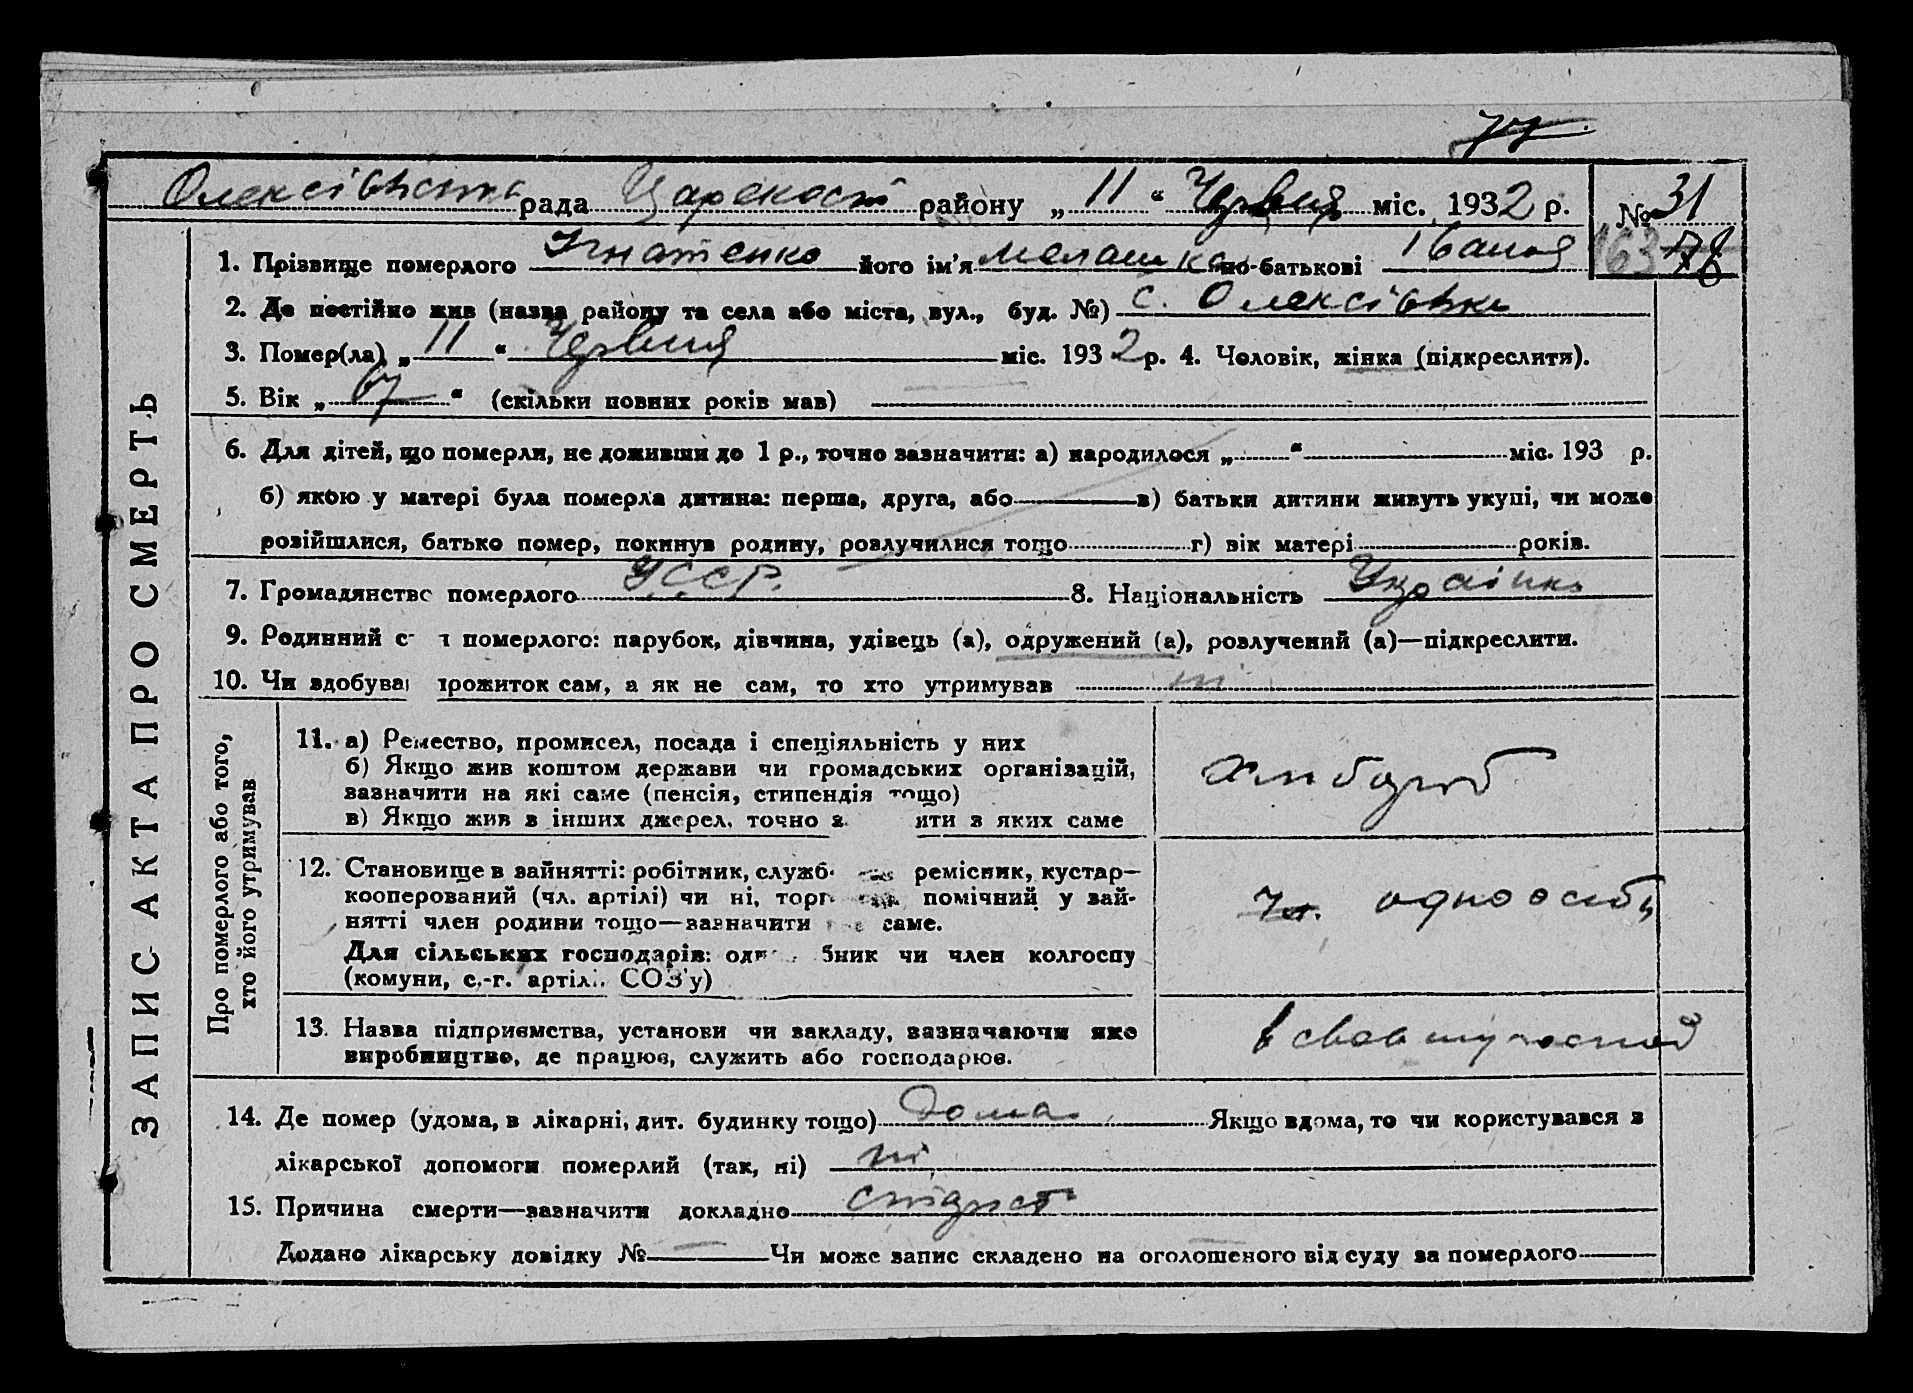 77
Олексіївська рада Царекост району „ 11 “ Червня міс. 1932 р. № 31
1. Прізвище померлого Ігнатенко його ім’я Мелашка по-батькові Іванов 163 78
2. Де постійно жив (назва району та села або міста, вул., буд. №) с. Олексіївка
3. Помер(ла) „ 11 “ Червня міс. 1932 р. 4. Чоловік, жінка (підкреслити).
5. Вік „ 67 “ (скільки повних років мав)
6. Для дітей, що померли, не доживши до 1 р., точно зазначити: а) народилося „ “ міс. 193 р.
б) якою у матері була померла дитина: перша, друга, або в) батьки дитини живуть укупі, чи може
розійшлися, батько помер, покинув родину, розлучилися тощо г) вік матері років.
7. Громадянство померлого УССР. 8. Національність Українка
9. Родинний с т померлого: парубок, дівчина, удівець (а), одружений (а), розлучений (а)—підкреслити.
10. Чи здобува прожиток сам, а як не сам, то хто утримував ні
ЗАПИС АКТА ПРО СМЕРТЬ
Про померлого або того, хто його утримував
11. а) Ремество, промисел, посада і спеціяльність у них
б) Якщо жив коштом держави чи громадських організацій,
зазначити на які саме (пенсія, стипендія тощо)
в) Якщо жив з інших джерел, точно з ити з яких саме
хлібороб
12. Становище в зайнятті: робітник, служб ремісник, кустар—
кооперований (чл. артілі) чи ні, торг помічний у зай-
нятті член родини тощо—зазначити саме.
Для сільських господарів: од бник чи член колгоспу
(комуни, с.-г. артілі. СОЗ’у)
чл. одноосібн
13. Назва підприємства, установи чи закладу, зазначаючи яке
виробництво, де працює, служить або господарює.
в своєму господ
14. Де помер (удома, в лікарні, дит. будинку тощо) Дома Якщо вдома, то чи користувався з
лікарської допомоги померлий (так, ні) ні
15. Причина смерти—зазначити докладно
Додано лікарську довідку № — Чи може запис складено на оголошеного від суду за померлого